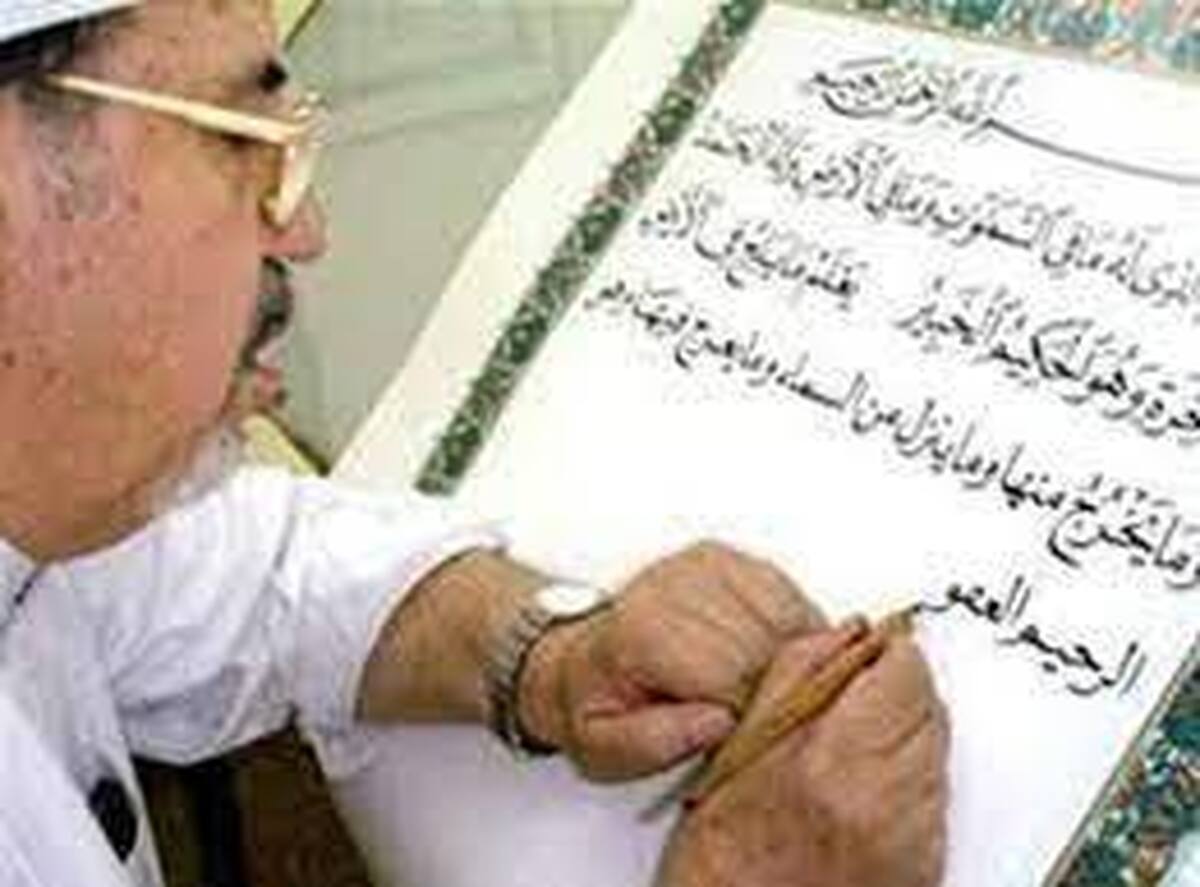 بسم الله الرحمن الرحيم
الذى له ما فى السموت وما فى الأرض وله الحمد
وهو الحكيم الخبير يعلم ما يلج فى الأرض
وما يخرج منها وما ينزل من السماء وما يعرج فيها وهو
الرحيم العفو